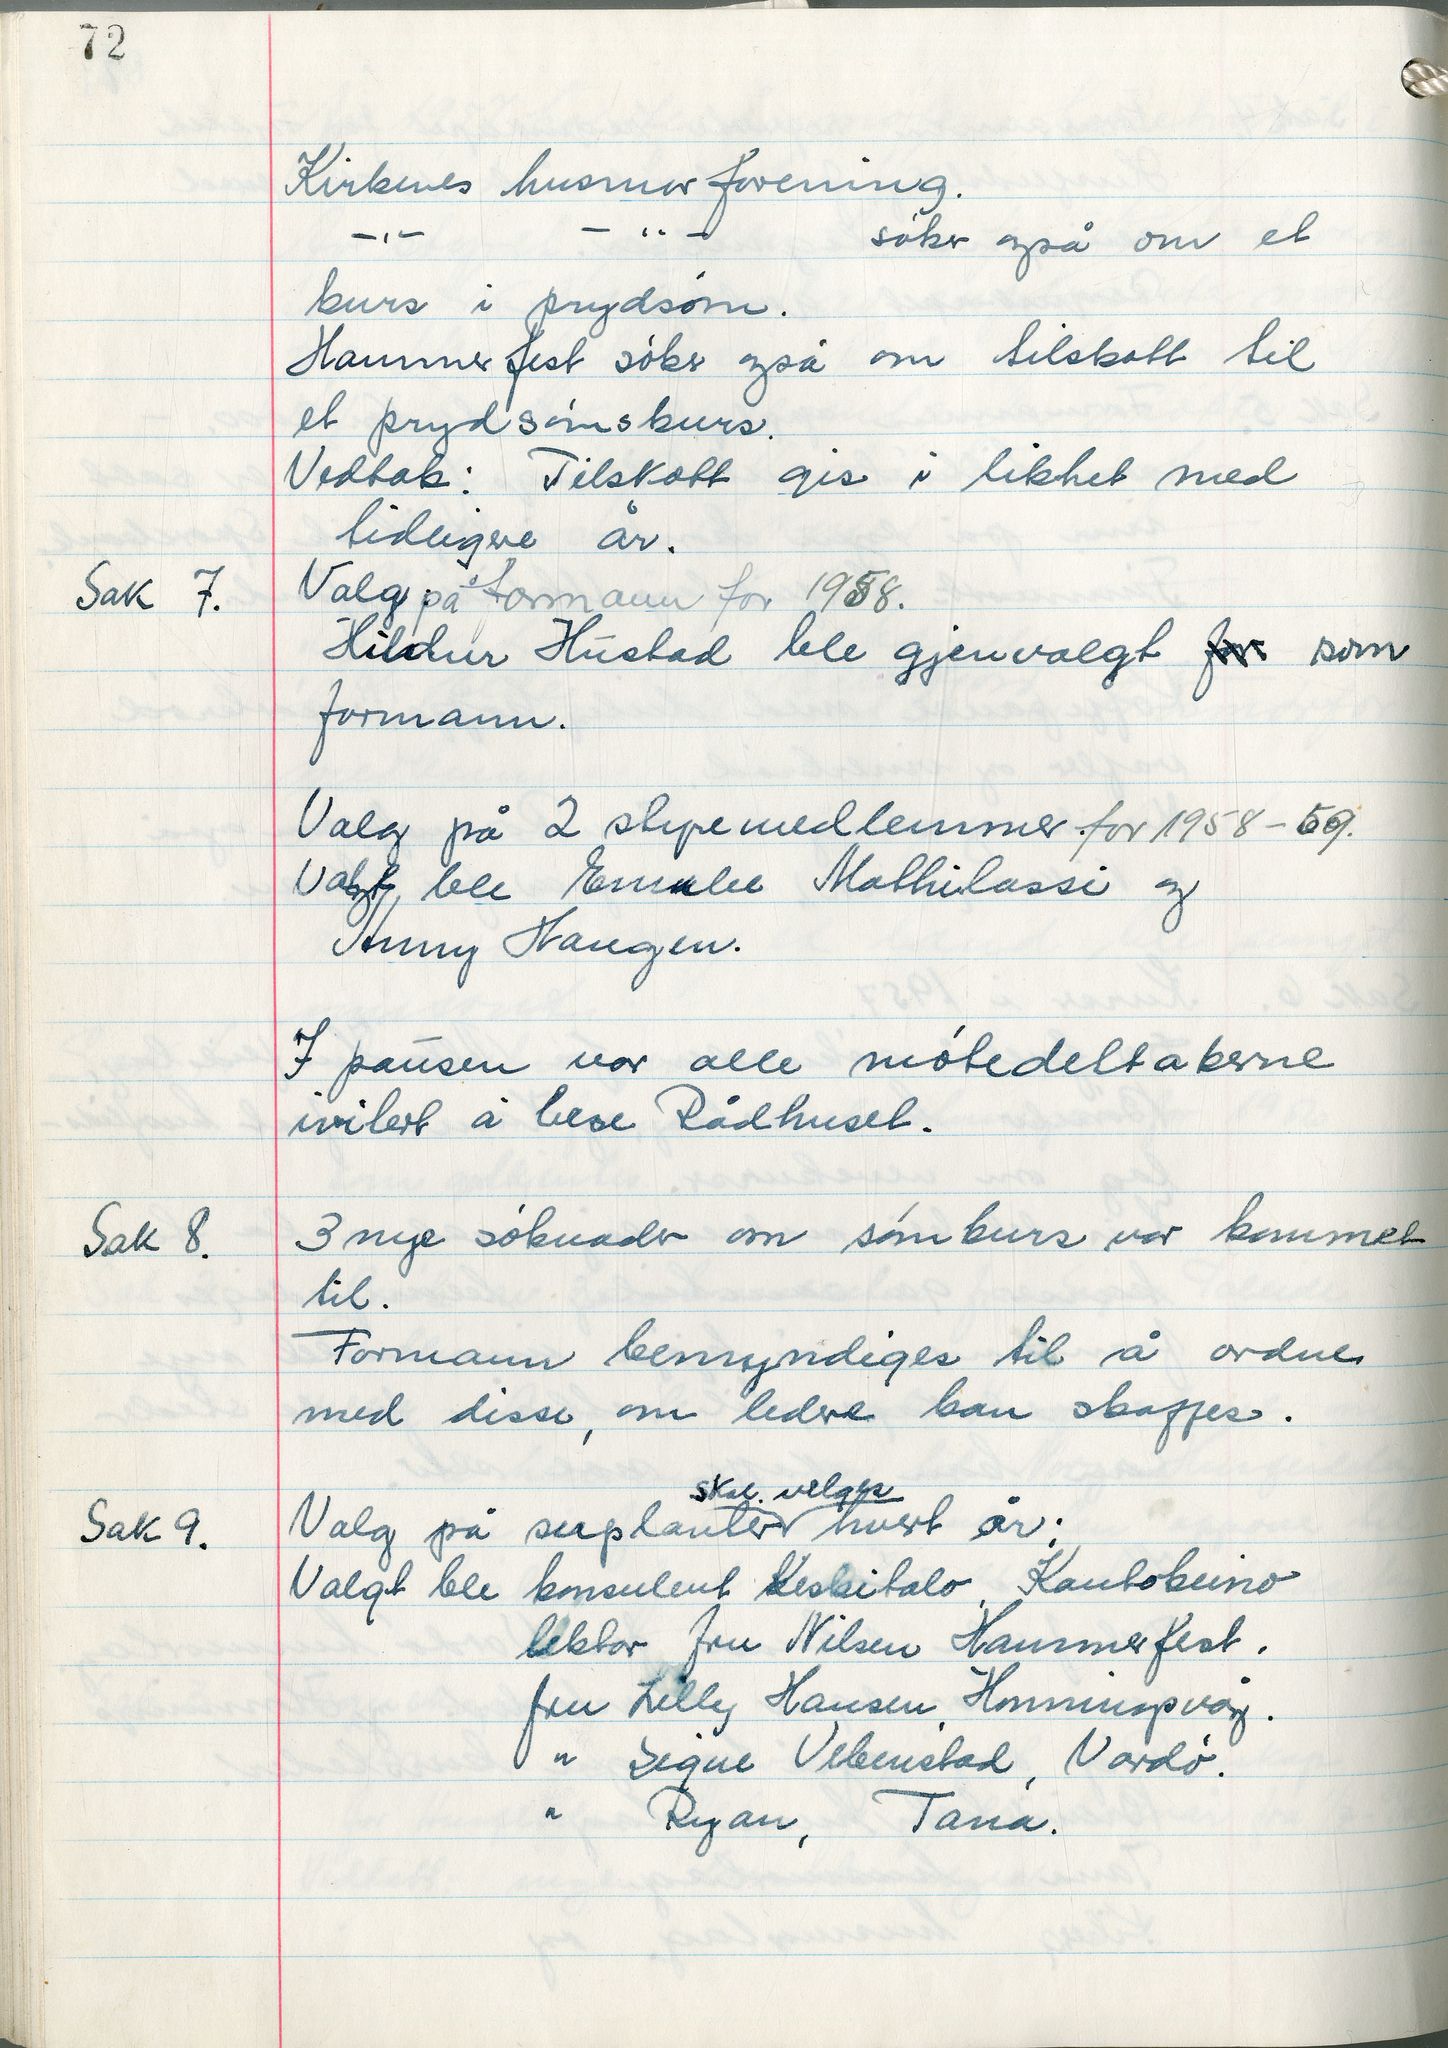 72
Kirkenes husmorforening.
-"- -"- søker også om et
kurs i prydsøm.
Hammerfest søker også om tilskott til
et prydsømskurs.
Vedtak: Tilskott gis i likhet med
tidligere år.
Sak 7. Valg på formann for 1958.
Hildur Hustad ble gjenvalgt for som
formann.
Valg på 2 styremedlemmer for 1958-59.
Valgt ble Mathilassi og
Anny Haugen.
I pausen var alle møtedeltakerne
invitert å bese Rådhuset.
Sak 8. 3 nye søknader om sømkurs var kommet
til.
Formann bemyndiges til å ordne
med disse, om ledere kan skaffes.
skal velges
Sak 9. Valg på suplanter hvert år:
Valgt ble konsulent Keskitalo, Kautokeino
lektor fru Nilsen Hammerfest.
fru Lilly Hansen, Honningsvåg.
" Signe Vebenstad, Vardø.
" Ryan, Tana.